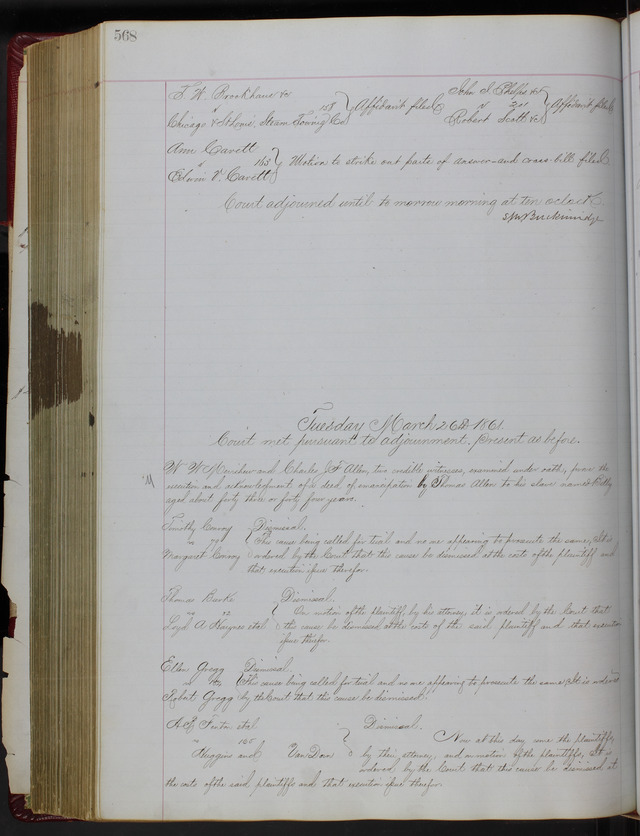 568
T. W. Brookhaus &c
vs 158 } Affidavit filed
Chicago & St Louis Steam Towing Co
John S. Phelps &c
vs 201 } Affidavit filed
Robert Scott &c
Ann Cavett
vs 163 } Motion to strike out parts of answer and cross-bill filed
Edwin V. Cavett
Court adjourned until to morrow morning at ten oclock.
S M Breckinridge
Tuesday March 26th 1861
Court met pursuant to adjournment. Present as before.
W. W. and Charles J. F. Allen, two credible witnesses, examined under oath, prove the
execution and acknowledgment of a deed of emancipation by Thomas Allen to his slave named
aged about forty three or forty four years.
Timothy Conroy Dismissal.
vs 77 This cause being called for trial and no one appearing to prosecute the same, It is
Margaret Conroy ordered by the Court that this cause be dismissed at the costs of the plaintiff and
that execution issue therefor.
Thomas Burke Dismissal.
vs 92 On motion of the plaintiff, by his attorney, it is ordered by the Court that
Loyd A. Haynes etal the cause be dismissed at the costs of the said plaintiff and that execution
issue therefor.
Ellen Gregg Dismissal.
vs This cause being called for trial and no one appearing to prosecute the same, It is ordered
Robert Gregg by the Court that this cause be dismissed.
A. P. etal Dismissal.
vs 165 Now at this day come the plaintiffs
Huggins and Van Dorn by their attorney, and on motion of the plaintiffs, It is
ordered by the Court that this cause be dismissed at
the costs of the said plaintiffs and that execution issue therefor.